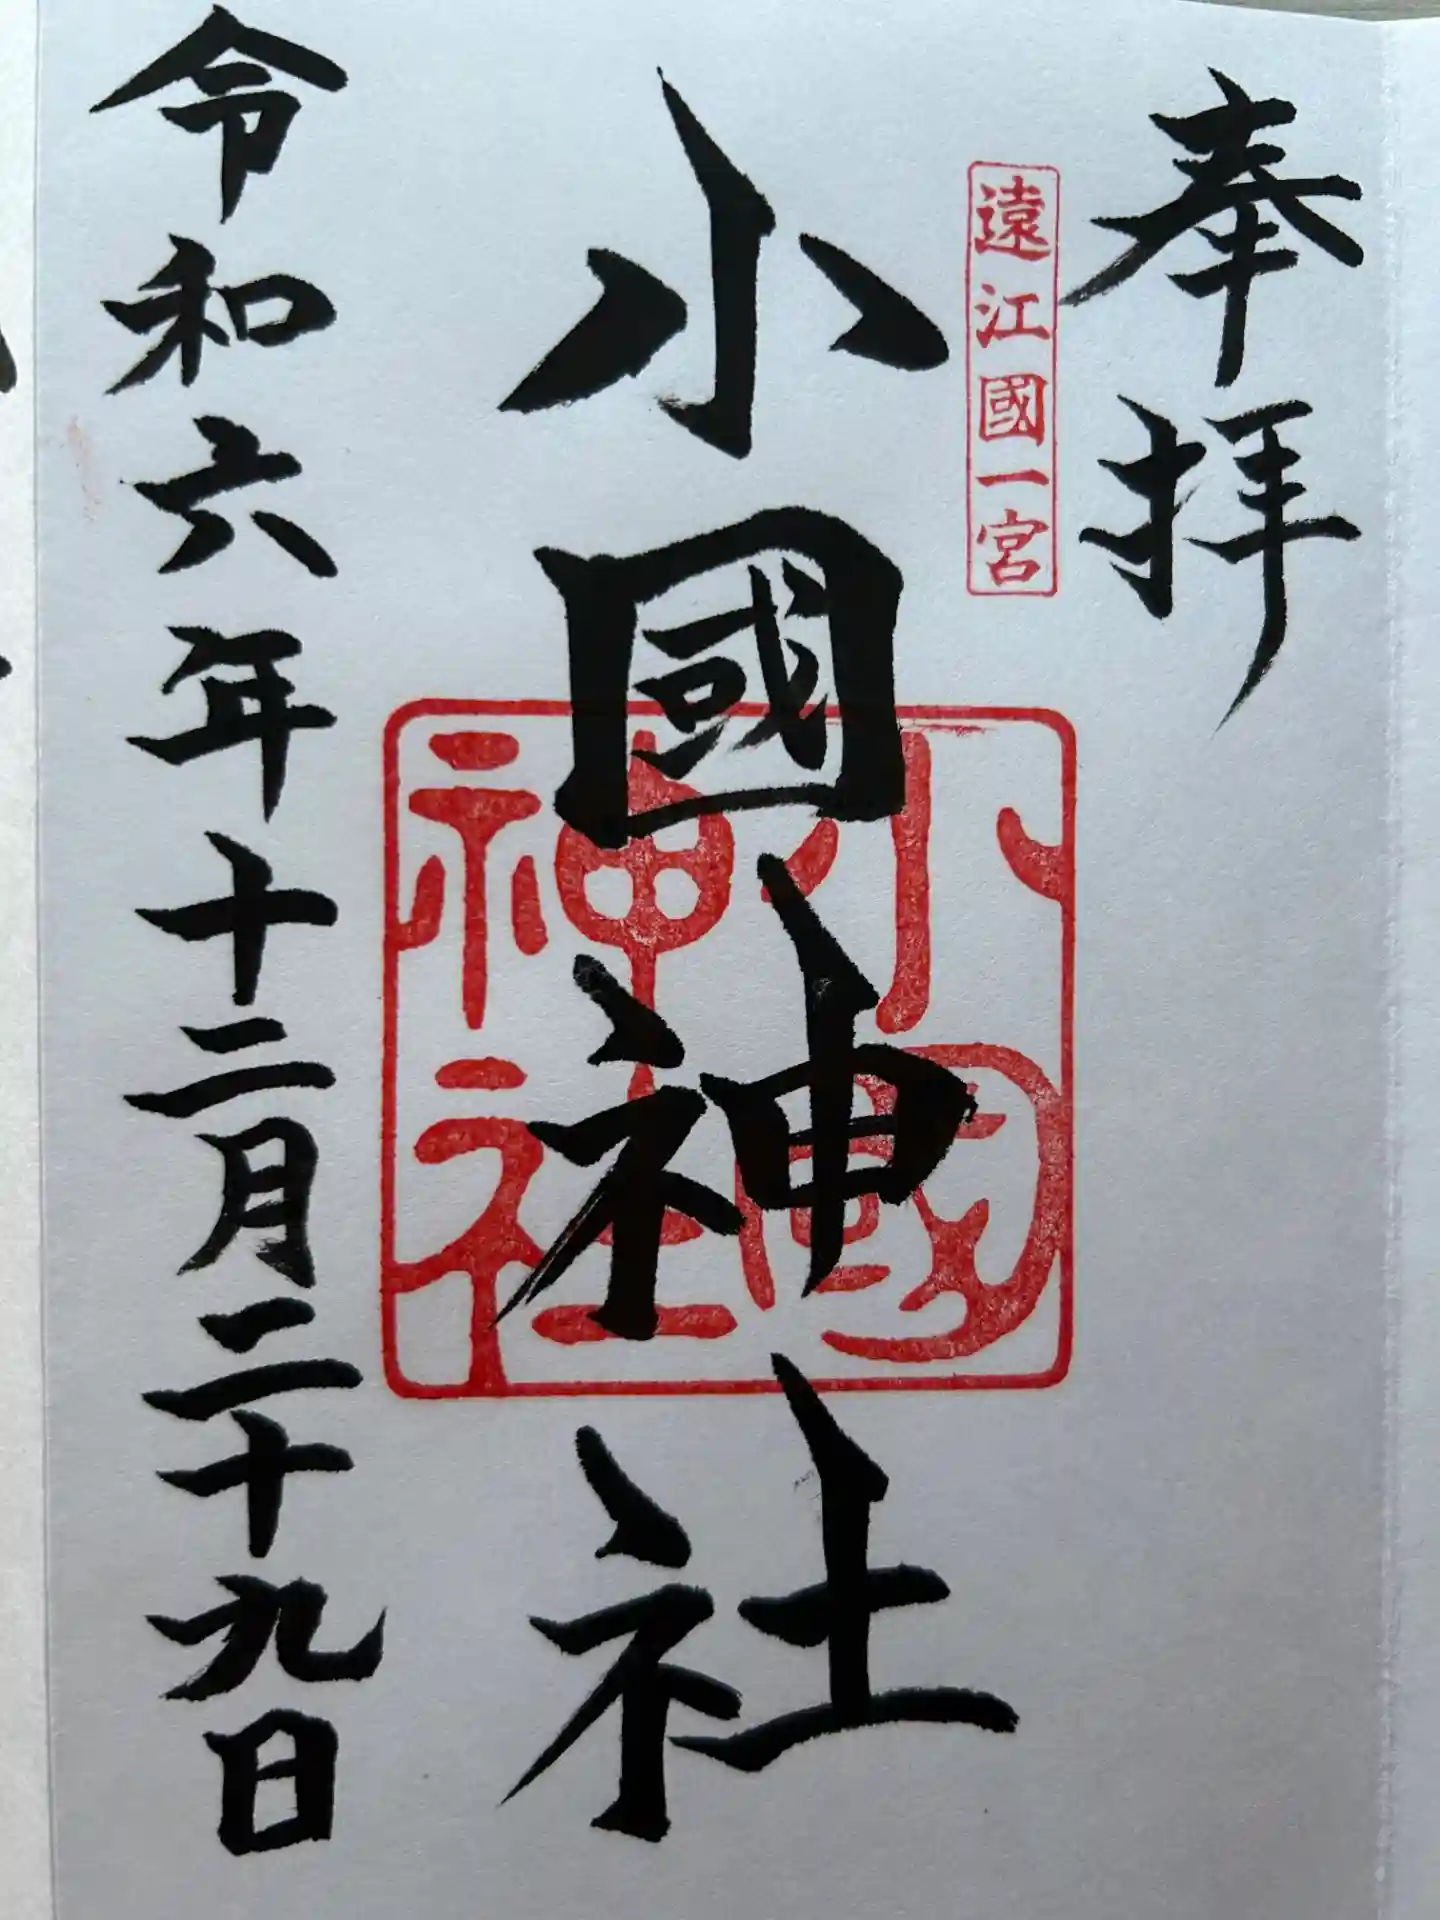 奉拝
遠江國一宮
小國神社
小國
神社
令和六年十二月二十九日